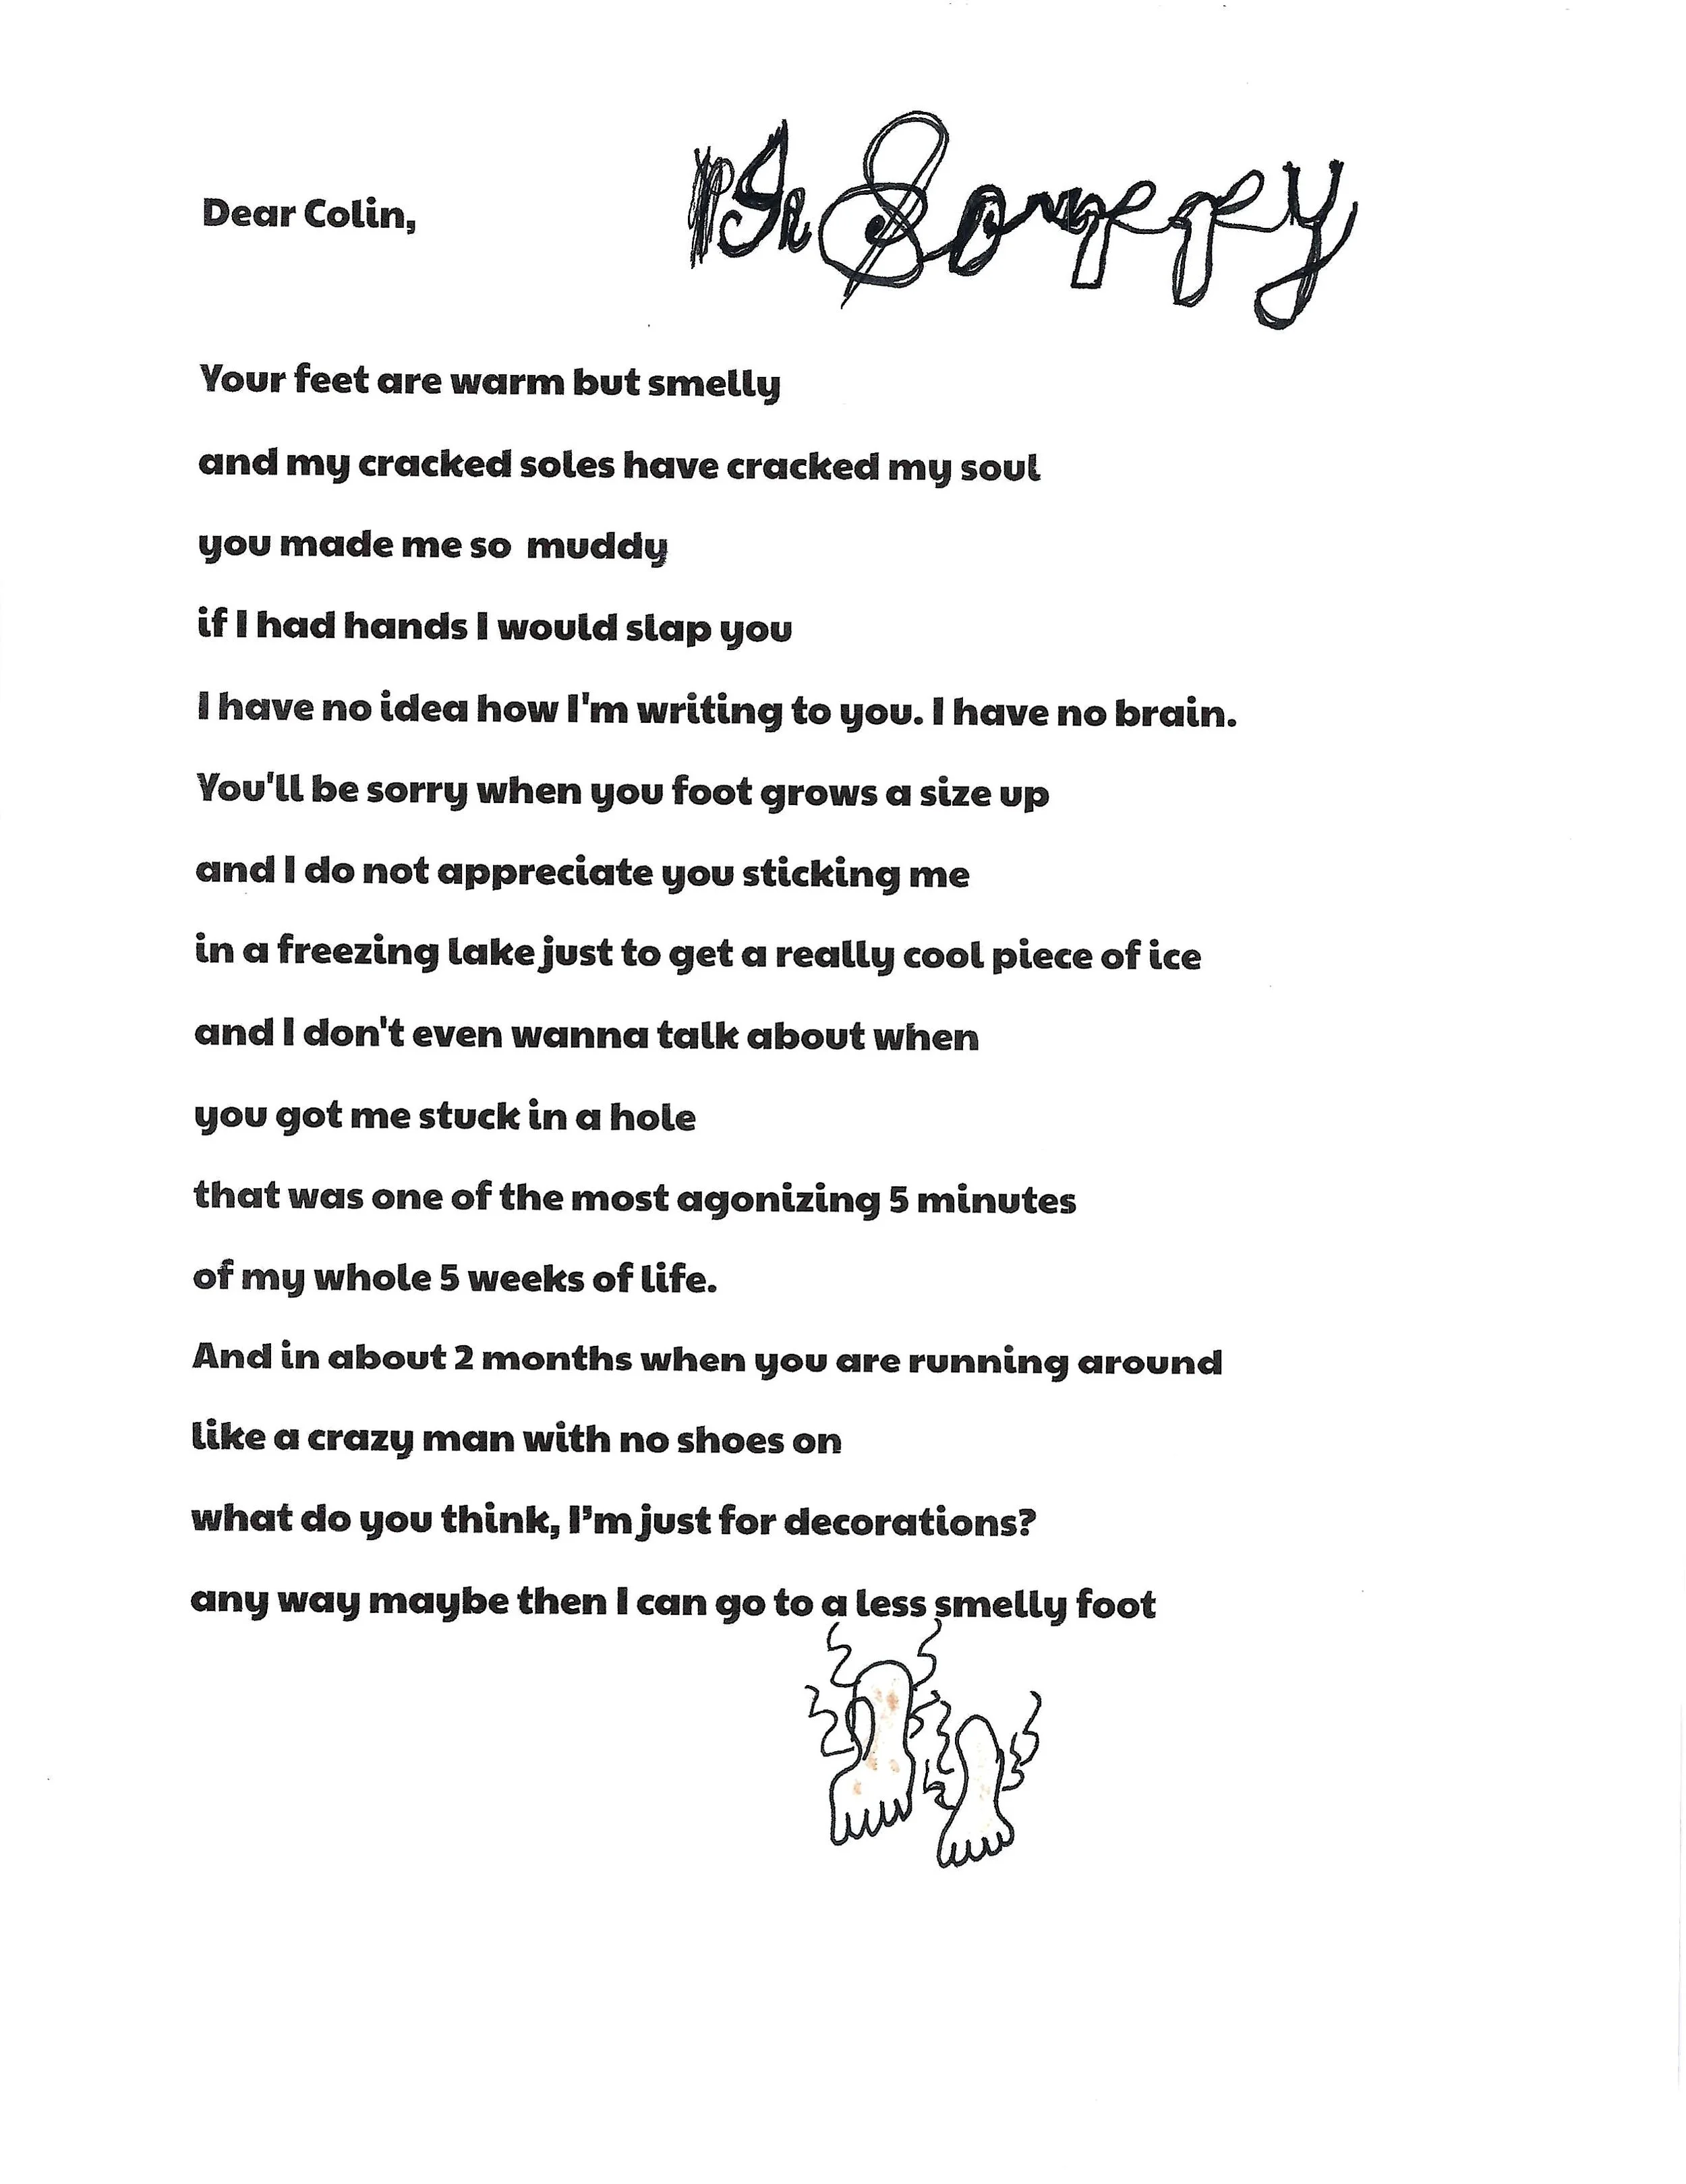 Dear Colin,
Your feet are warm but smelly
and my cracked soles have cracked my soul
you made me so muddy
if I had hands I would slap you
I have no idea how I'm writing to you. I have no brain.
You'll be sorry when you foot grows a size up
and I do not appreciate you sticking me
in a freezing lake just to get a really cool piece of ice
and I don't even wanna talk about when
you got me stuck in a hole
that was one of the most agonizing 5 minutes
of my whole 5 weeks of life.
And in about 2 months when you are running around
like a crazy man with no shoes on
what do you think, I’m just for decorations?
any way maybe then I can go to a less smelly foot